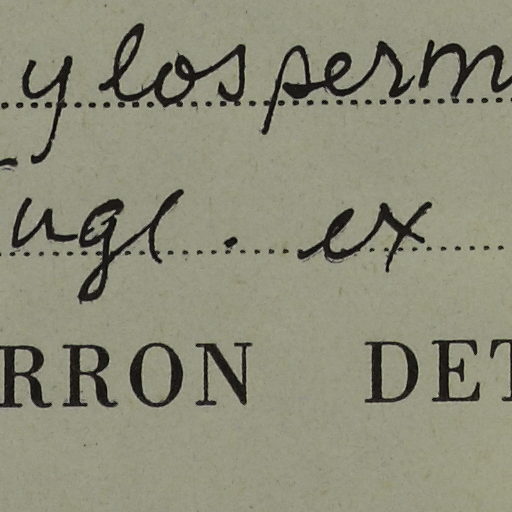 ylosperm
ugl. ex
RRON DET